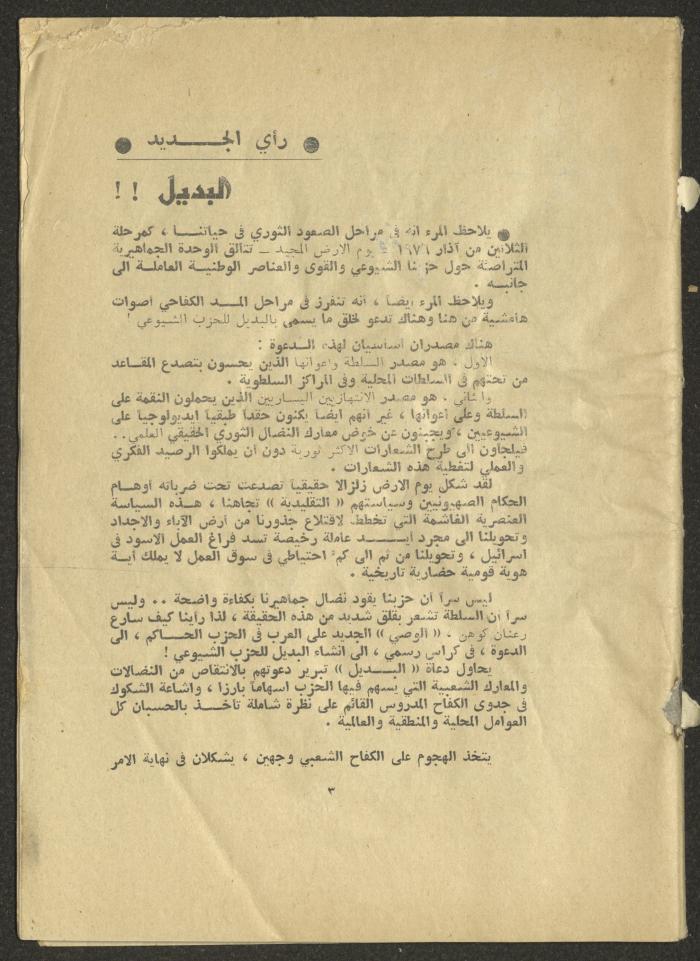 ● رأي الجـــديد ●
البديل !!
● يلاحظ المرء انه في مراحل الصعود الثوري في حياتنــا ، كمرحلة
الثلاثين من آذار ١٩٧٦ ـ يوم الارض المجيد ـ تتالق الوحدة الجماهيرية
المتراصة حول حزبنا الشيوعي والقوى والعناصر الوطنيـة العاملـة الى
جانبـه .
ويلاحظ المرء ايضا ، أنه تنفرز في مراحل المـد الكفاحي أصوات
هامشية من هنا وهناك تدعو لخلق ما يسمى بالبديل للحزب الشيوعي !
هناك مصدران أساسيان لهذه الـدعوة :
الاول . هو مصدر السلطة واعوانها الذين يحسون بتصدع المقـاعد
من تحتهم في السلطات المحلية وفي المراكز السلطوية .
والثاني . هو مصدر الانتهازيين اليساريين الذين يحملون النقمة على
السلطة وعلى أعوانها ، غير أنهم ايضا يكنون حقدا طبقيا ايديولوجيا على
الشيوعيين ، ويجبنون عن خوض معارك النضال الثوري الحقيقي العلمي..
فيلجاون الى طرح الشعارات الاكثر ثورية دون أن يملكوا الرصيد الفكري
والعملي لتغطية هذه الشعارات .
لقد شكل يوم الارض زلزالا حقيقيا تصدعت تحت ضرباته أوهـام
الحكام الصهيونيين وسياستهم (( التقليدية )) تجاهنا ، هـذه السياسة
العنصرية الغاشمة التي تخطط لاقتلاع جذورنا من أرض الآباء والاجداد
وتحويلنا الى مجرد ايـــد عاملة رخيصة تسد فراغ العمل الاسود في
اسرائيل ، وتحويلنا من ثم الى كم احتياطي في سوق العمل لا يملك أيـة
هوية قومية حضارية تاريخية .
ليس سرا ان حزبنا يقود نضال جماهيرنا بكفاءة واضحة .. وليس
سرا أن السلطة تشعر بقلق شديد من هذه الحقيقة ، لذا رأينا كيف سارع
رعنان كوهن ، (( الوصي )) الجديد على العرب في الحزب الحـاكم ، الى
الدعوة ، في كراس رسمي ، الى انشاء البديل للحزب الشيوعي !
يحاول دعاة (( البــديل )) تبرير دعوتهم بالانتقاص من النضالات
والمعارك الشعبية التي يسهم فيها الحزب اسهاما بارزا ، واشاعة الشكوك
في جدوى الكفاح المدروس القائم على نظرة شاملة تأخــذ بالحسبان كل
العوامل المحلية والمنطقية والعالمية .
يتخذ الهجوم على الكفاح الشعبي وجهين ، يشكلان في نهاية الامر
٣